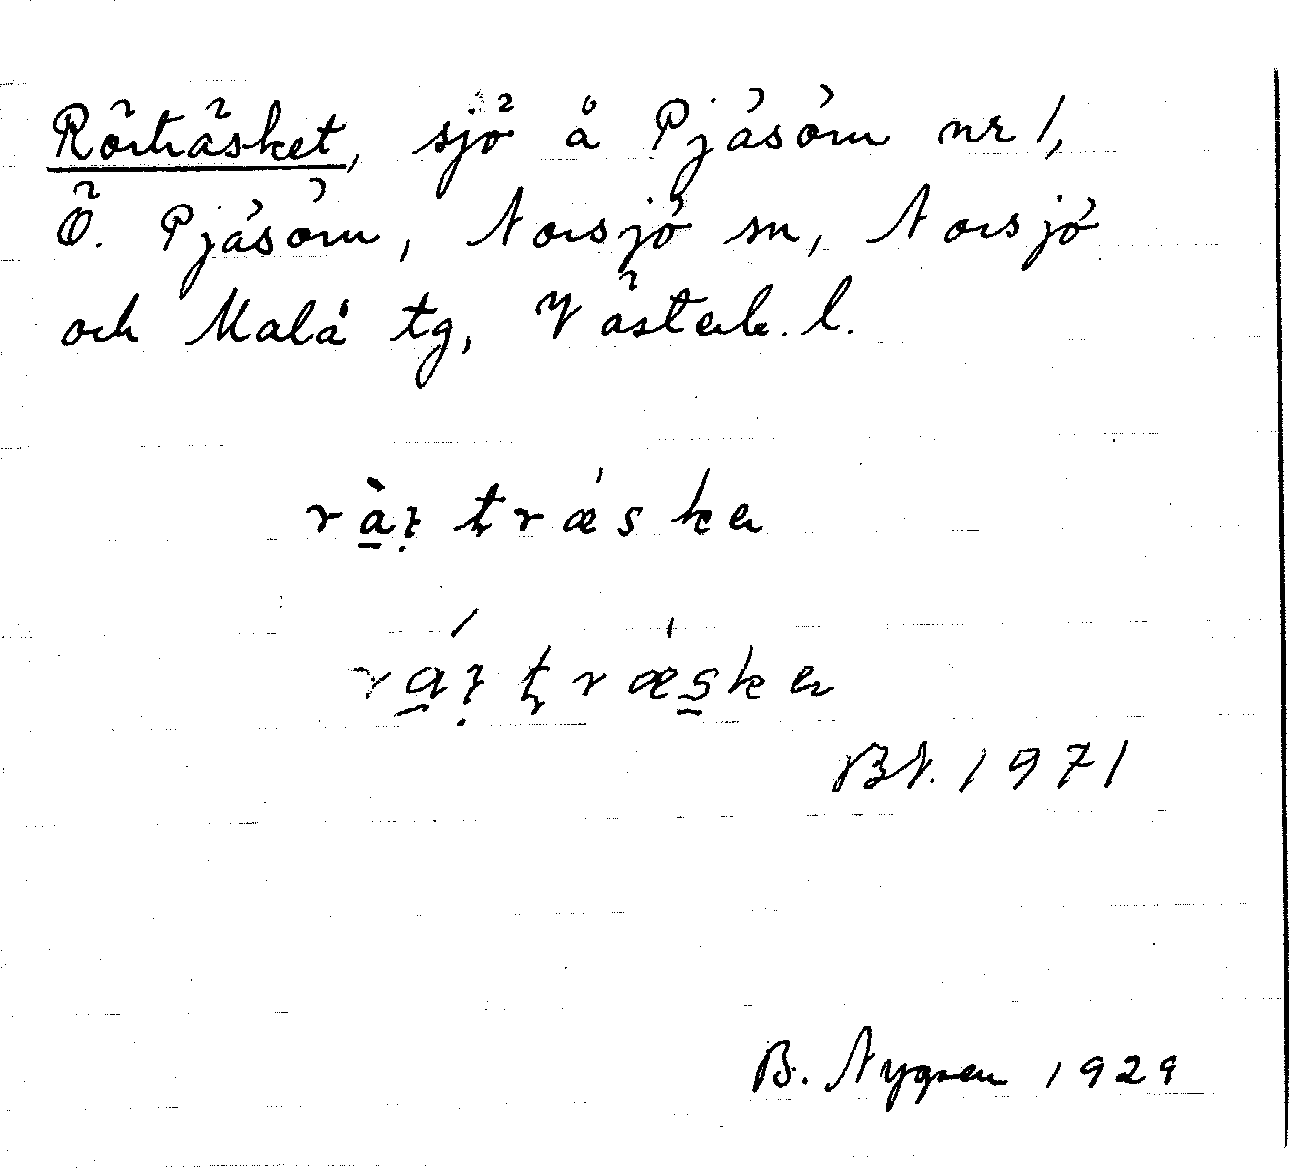 Rörträsket, sjö å Pjäsörn nr 1,
Ö. Pjäsörn, Norsjö sn, Norsjö
och Malå tg, Västerb. l.
ràṛ ʈræ´skɐ
ráṛ ʈræ´skɐ
BN. 1971
B. Nygren 1929